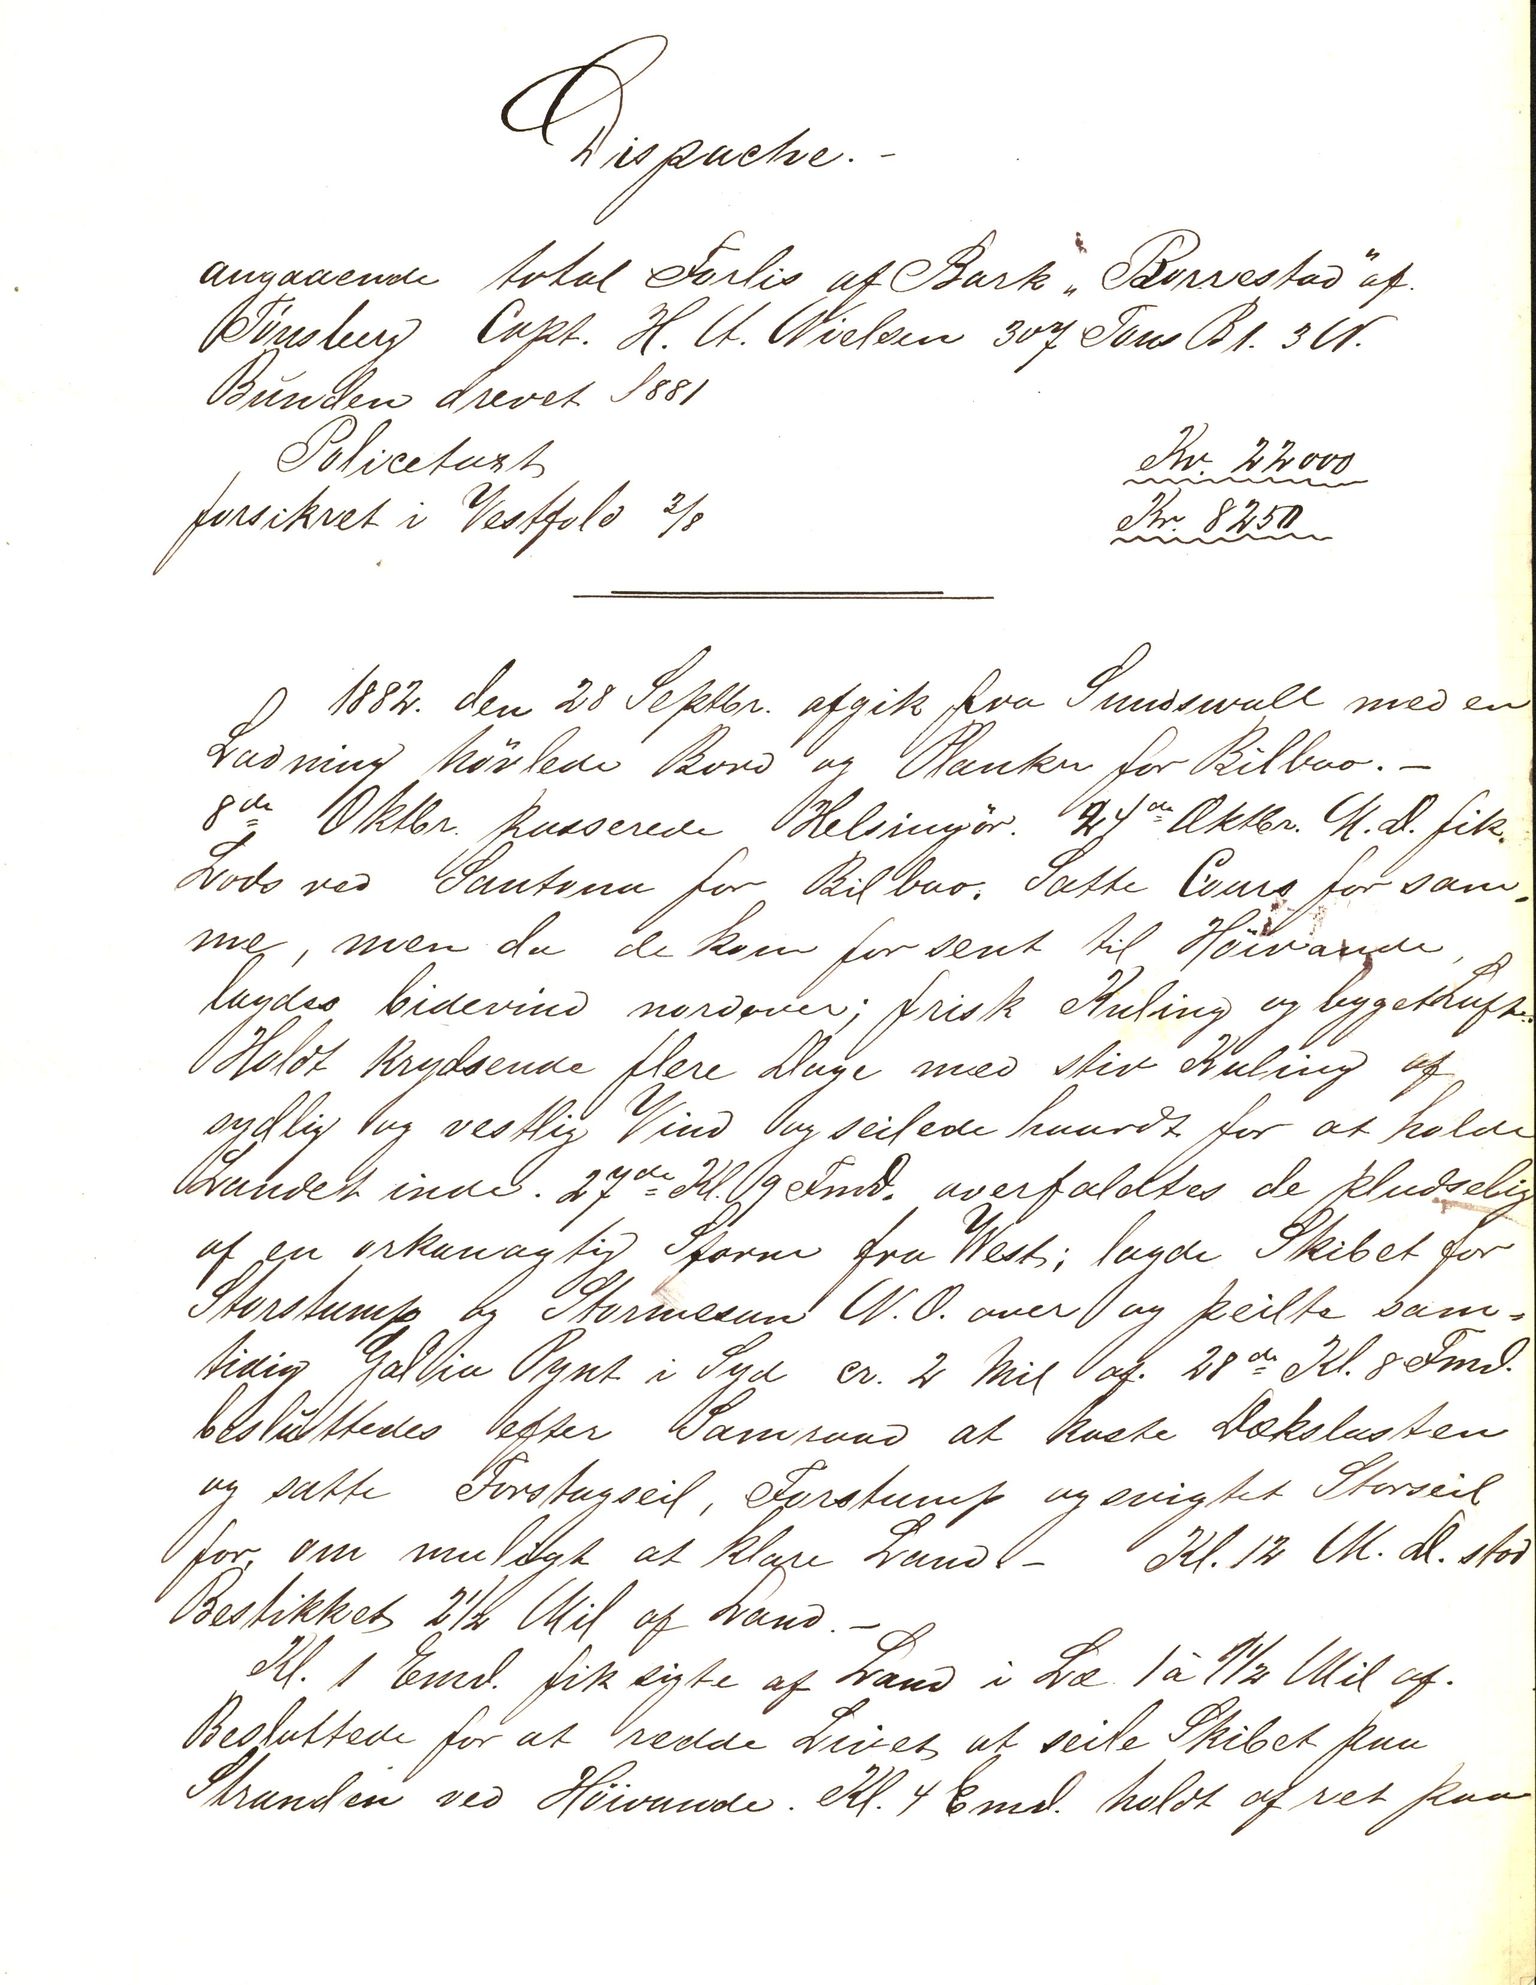 Dispache. -
angaaende total Forlis af Bark „Borrestad" af
Tönsberg Capt. H. A. Nielsen 307 Tons B 1. 3 N.
Bunden drevet 1881
Policetaxt Kr. 22000
forsikret i Vestfold 3/8 Kr. 8250
1882. den 28 Septbr. afgik fra Sundswall med en
Ladning hövlede Bord og Planker for Bilbao. -
8de Oktbr. passerede Helsingör. 24de Oktbr. M. D. fik
Lods ved Santona for Bilbao. Satte Cours for sam-
me, men da de kom for sent til Höivande,
lagdes bidevind nordover; frisk Kuling og bygetLuft.
Holdt krydsende flere Dage med stiv Kuling af
sydlig og vestlig Vind og seilede haardt for at holde
Landet inde. 27de Kl. 9 Fmd. overfaldtes de pludselig
af en orkanagtig Storm fra West; lagde Skibet for
Storstump og Stormesan N. O. over og peilte sam-
tidig Galvia Pynt i Syd cr. 2 Mil af. 28de Kl. 8 Fmd.
besluttedes efter Samraad at kaste Dækslasten
og satte Forstagseil, Forstump og svigtet Storseil
for, om muligt at klare Land. - Kl. 12 M. D. stod
Bestikket 2 1/2 Mil af Land. -
Kl. 1 Emd. fik sigte af Land i Læ 1 à 1 1/2 Mil af.
Besluttede for at redde Livet at seile Skibet paa
Stranden ved Höivande. Kl. 4 Emd. holdt af ret paa